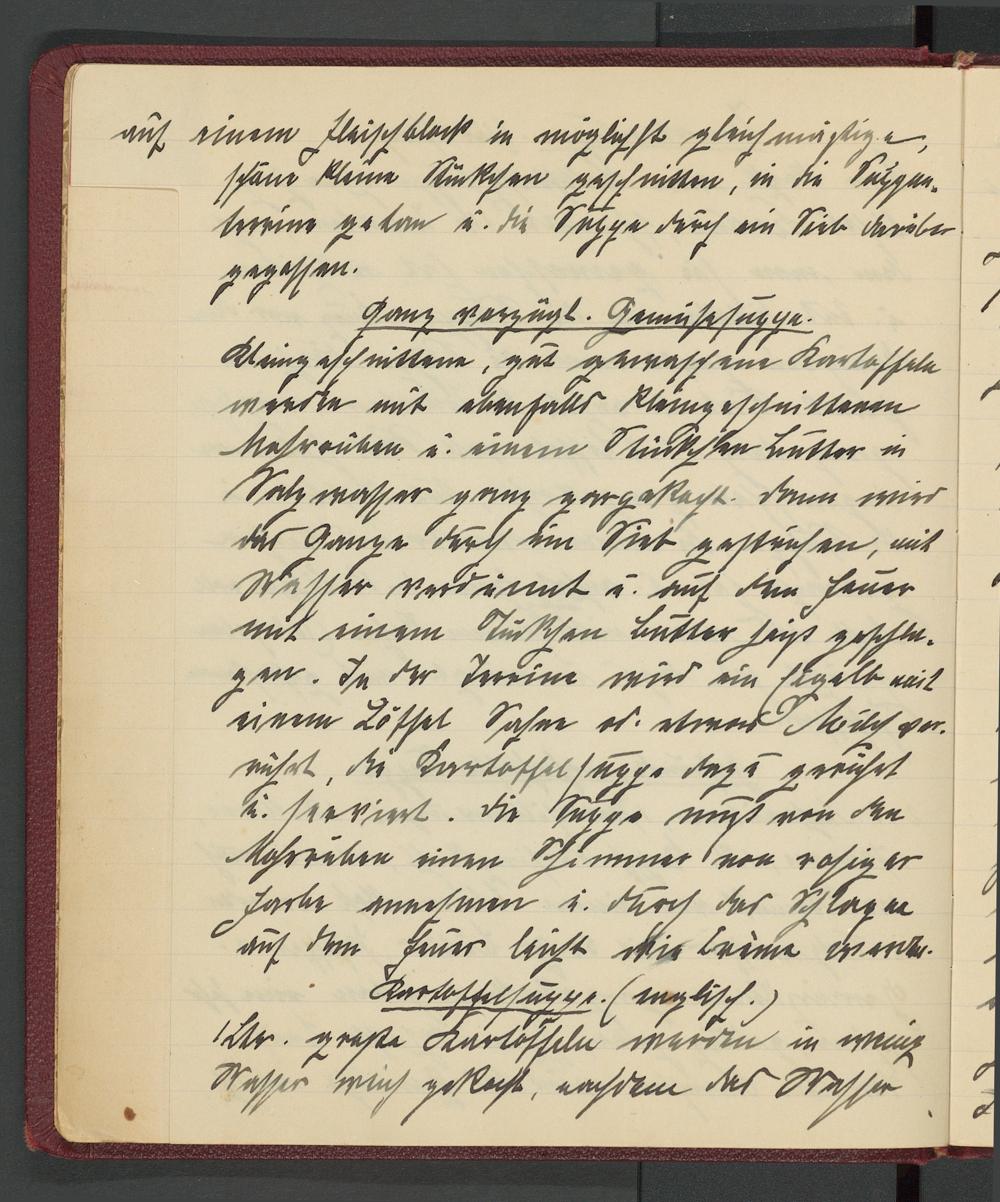 auf einem Fleischblock in möglichst gleichmäßige,
schöne kleine Stückchen geschnitten, in die Suppen-
terrine getan u. die Suppe durch ein Sieb darüber
gegossen.
Ganz vorzügl. Gemüsesuppe.
Kleingeschnittene, gut gewaschene Kartoffeln
werden mit ebenfalls kleingeschnittenen
Mohrrüben u. einem Stückchen Butter in
Salzwasser ganz gargekocht. Dann wird
das Ganze durch ein Sieb gestrichen, mit
Wasser verdünnt u. auf dem Feuer
mit einem Stückchen Butter heiß geschla-
gen. In der Terrine wird ein Eigelb mit
einem Löffel Sahne od. etwas Milch ver-
rührt, die Kartoffelsuppe dazu gerührt
u. serviert. Die Suppe muß von den
Mohrrüben einen Schimmer von rosiger
Farbe annehmen u. durch das Schlagen
auf dem Feuer leicht wie Crême werden.
Kartoffelsuppe. (englisch.)
1 Ltr. große Kartoffeln werden in wenig
Wasser weich gekocht, nachdem das Wasser